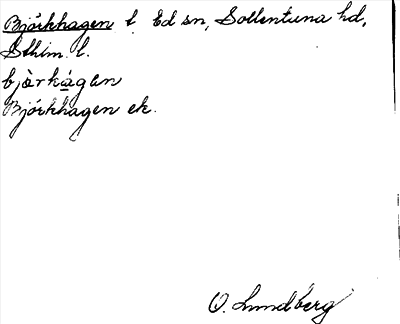 Björkhagen t. Ed sn, Sollentuna hd,
Sthlm. l.
bjàrkágan
Björkhagen ek.
O. Lundberg